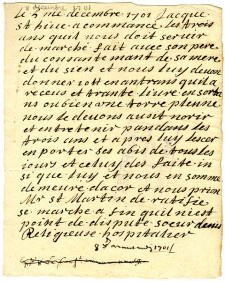 le 2 me decembre 1701 Jacque
st hire a commance les trois
ans quil nous doit seruir
de marche fait auec son pere
du consantemant de sa mere
et du sien et nous luy deuon
donner 10ll en antrans quil a
receus et trante liure en sortan
ou bien une torre plenne
nous le deuons aussi norir
et entretenir pandans les
trois ans et apres luy lesser
en porter ses abis de tous les
jours et celuy des faite in
si que luy et nous en somme
de meure dacor et nous prion
Mr st Martin de ratifie
se marche a fin quil niest
point de dispute soeur denis
Religieuse hospitalier